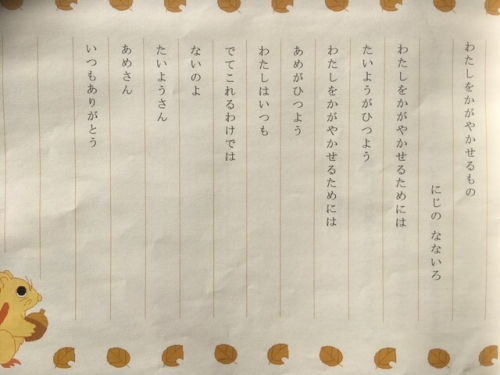 わたしをかがやかせるもの
にじの なないろ
わたしをかがやかせるためには
たいようがひつよう
わたしをかがやかせるためには
あめがひつよう
わたしはいつも
でてこれるわけでは
ないのよ
たいようさん
あめさん
いつもありがとう